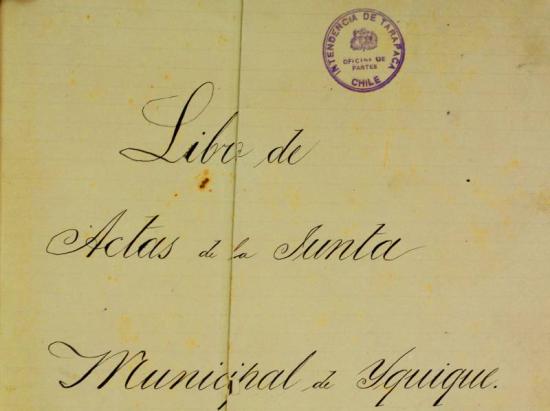 INTENDENCIA DE TARAPACA
OFICINA DE
PARTES
CHILE
Libo de
Actas de la Junta
Municipal de Yquique.